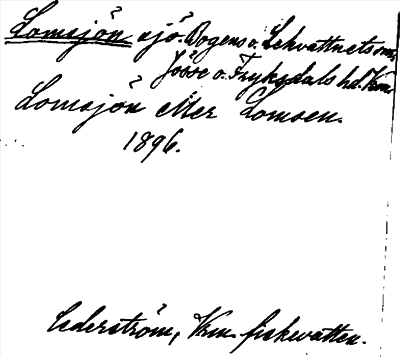 Lomsjön sjö Bogens o. Lekvattnets smr,
Jösse o. Fryksdals hd. Vrm
Lomsjön eller Lomsen.
1896.
Cederström, Vrm. fiskevatten.